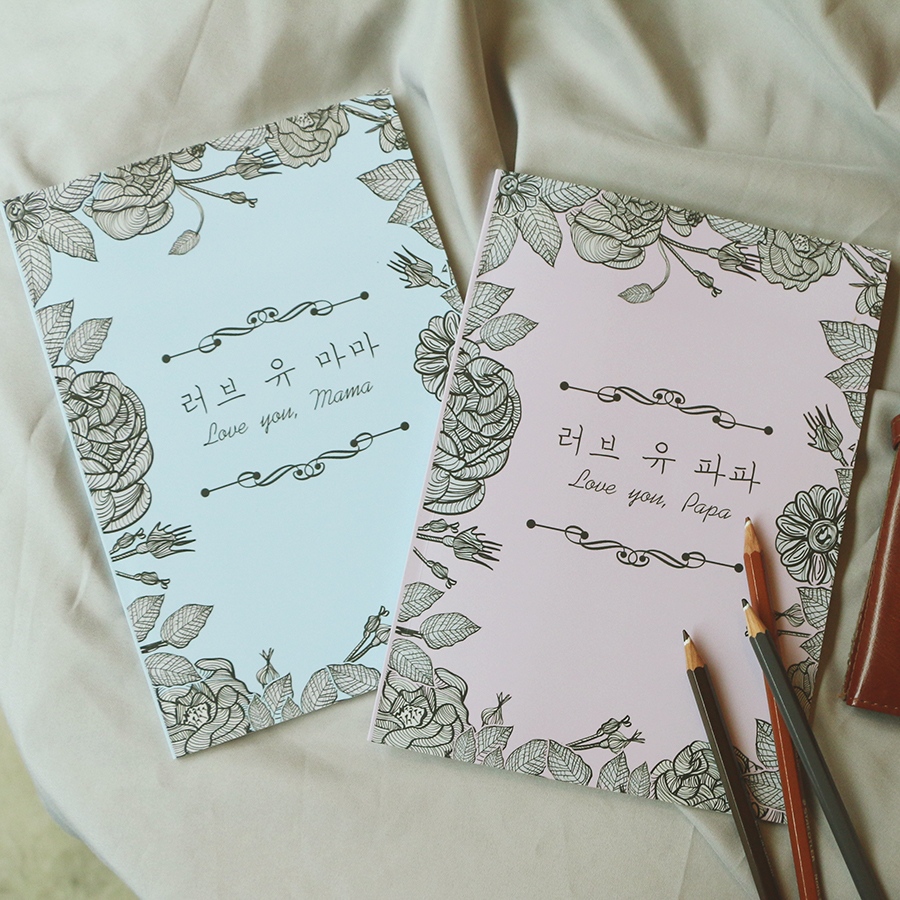 러브 유 마마
Love you, Mama
러브 유 파파
Love you, Papa